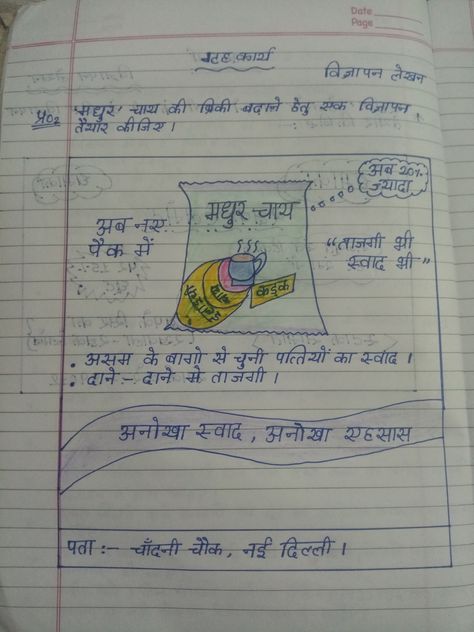 Date
Page
गृह कार्य
विज्ञापन लेखन
प्र०2 'मधुर' चाय की बिक्री बढाने हेतु एक विज्ञापन
तैयार कीजिए ।
अब 20%
ज़्यादा
मधुर चाय
अब नए
पैक में
"ताजगी भी
स्वाद भी"
कड़क
• असम के बागो से चुनी पत्तियों का स्वाद ।
• दाने :- दाने मे ताजगी ।
अनोखा स्वाद , अनोखा एहसास
पता :- चाँदनी चौक, नई दिल्ली ।